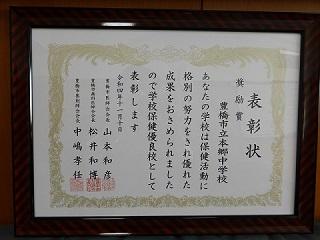 表彰状
奨励賞
豊橋市立本郷中学校
あなたの学校は保健活動に
格別の努力をされ優れた
成果をおさめられました
ので学校保健優良校として
表彰します
令和四年十一月十日
豊橋市医師会会長 山本和彦
豊橋市歯科医師会会長 松井和博
豊橋市薬剤師会会長 中嶋孝任